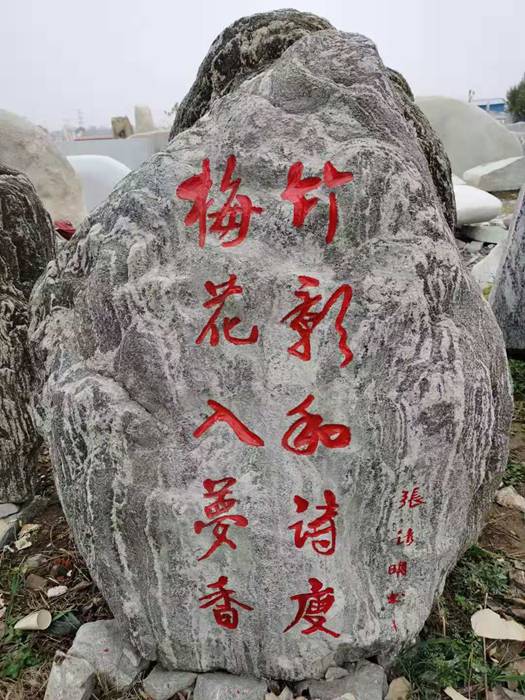 竹影和诗瘦
梅花入夢香
張诗明書